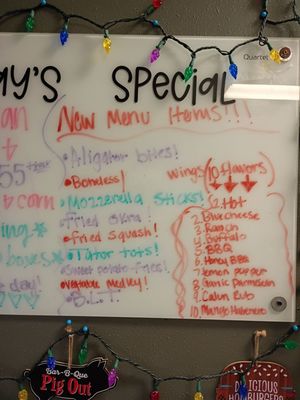 Quartet
AY'S SPECIAL
New Menu Items!!!
Aligator bites!
Boneless!
Mozzerella sticks!
Fried okra!
Fried squash!
Tator tots!
Sweet potato fries!
Vegetable medley!
B.L.T.
wings (10 flavors)
1. Hot
2. Blue cheese
3. Ranch
4. Buffalo
5. BBQ
6. Honey BBQ
7. lemon pepper
8. Garlic Parmesean
9. Cajun Rub
10. Mango Habenero
55
corn
boxes
day!
Bar-B-Que
Pig Out
Delicious